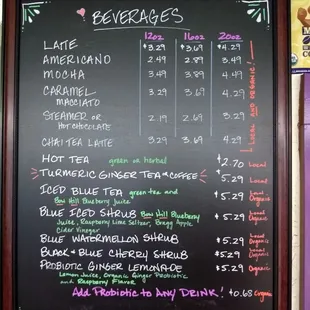 BEVERAGES
12oz 16oz 20oz
LATTE $3.29 $3.69 $4.29
AMERICANO 2.49 2.89 3.49
MOCHA 3.49 3.89 4.49
CARAMEL MACCIATO 3.29 3.69 4.29
STEAMER OR HOT CHOCOLATE 2.19 2.69 3.29
CHAI TEA LATTE 3.29 3.69 4.29
LOCAL AND ORGANIC!
HOT TEA green or herbal $2.70 Local
TURMERIC GINGER TEA & COFFEE $5.29 Local
ICED BLUE TEA green tea and $5.29 Local Organic
Bow Hill Blueberry Juice
BLUE ICED SHRUB Bow Hill Blueberry $5.29 Local Organic
Juice, Raspberry Lime Seltzer, Bragg Apple
Cider Vinegar
BLUE WATERMELON SHRUB $5.29 Local Organic
BLACK & BLUE CHERRY SHRUB $5.29 Organic
PROBIOTIC GINGER LEMONADE $5.29 Organic
Lemon Juice, Organic Ginger Probiotic
and Raspberry Flavor
Add Probiotic to Any DRINK! +0.68 Organic